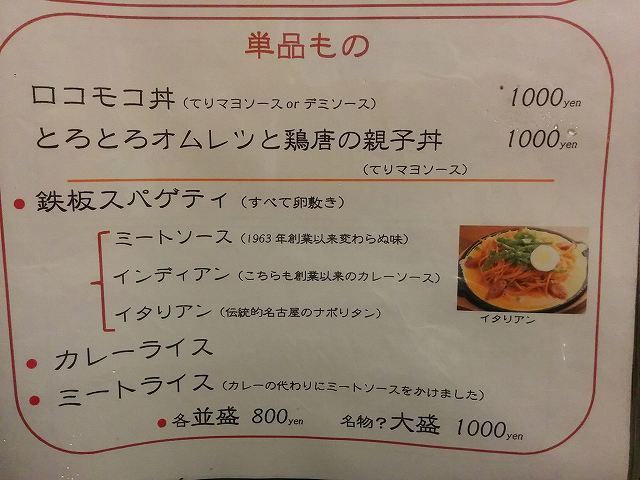 単品もの
ロコモコ丼（てりマヨソース or デミソース） 1000yen
とろとろオムレツと鶏唐の親子丼 1000yen
（てりマヨソース）
●鉄板スパゲティ（すべて卵敷き）
ミートソース（1963年創業以来変わらぬ味）
インディアン（こちらも創業以来のカレーソース）
イタリアン（伝統的名古屋のナポリタン）
イタリアン
●カレーライス
●ミートライス（カレーの代わりにミートソースをかけました）
●各並盛 800yen 名物？大盛 1000yen